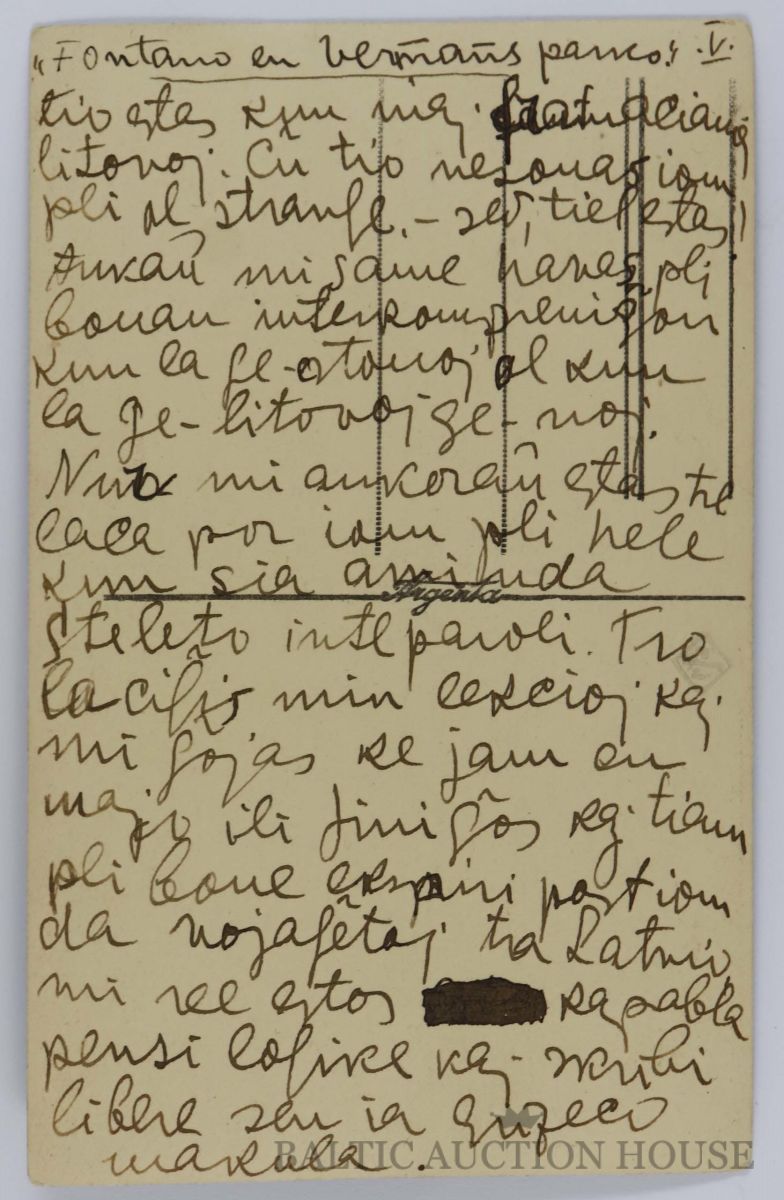 "Fontano en Vermaņs parko." .V.
tio estas kun niaj frat-nacianoj
litovoj. Ĉu tio ne sonas iom
pli ol strange, - sed, tiel estas!
Ankaŭ mi same havas pli
bonan interkompreniĝon
kun la ge-estonoj ol kun
la ge-litovoj ge-noj.
Nun mi ankoraŭ estas tre
laca por iom pli hele
kun sia aminda
steleto interparoli. Tro
lacigis min lekcioj kaj
mi ĝojas ke jam en
majo ili finiĝos kaj tiam
pli bone ekspiri post iom
da vojaĝetoj tra Latvio,
mi ree estos kapabla
pensi logike kaj skribi
libere sen ia
makula.
Argenta
BALTIC AUCTION HOUSE